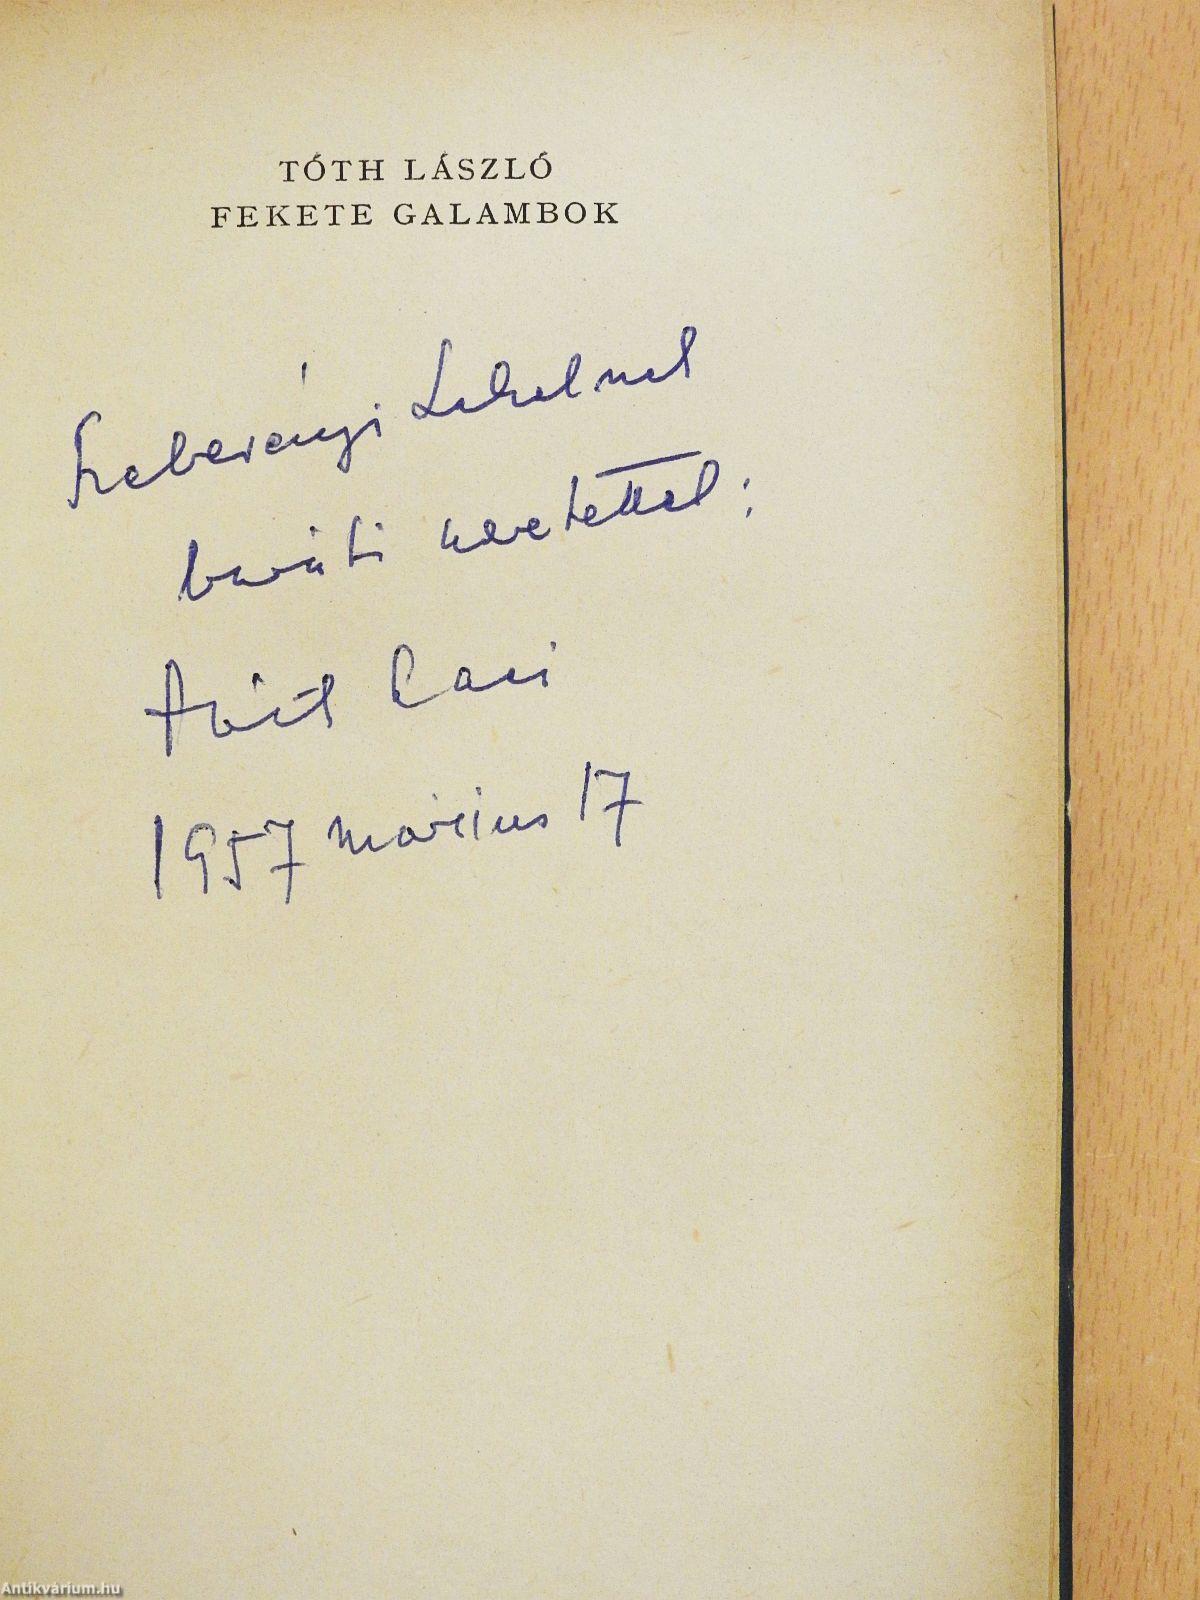 TÓTH LÁSZLÓ
FEKETE GALAMBOK
Szeberényi Lehelnek
baráti szeretettel:
Tóth Laci
1957 március 17
Antikvárium.hu